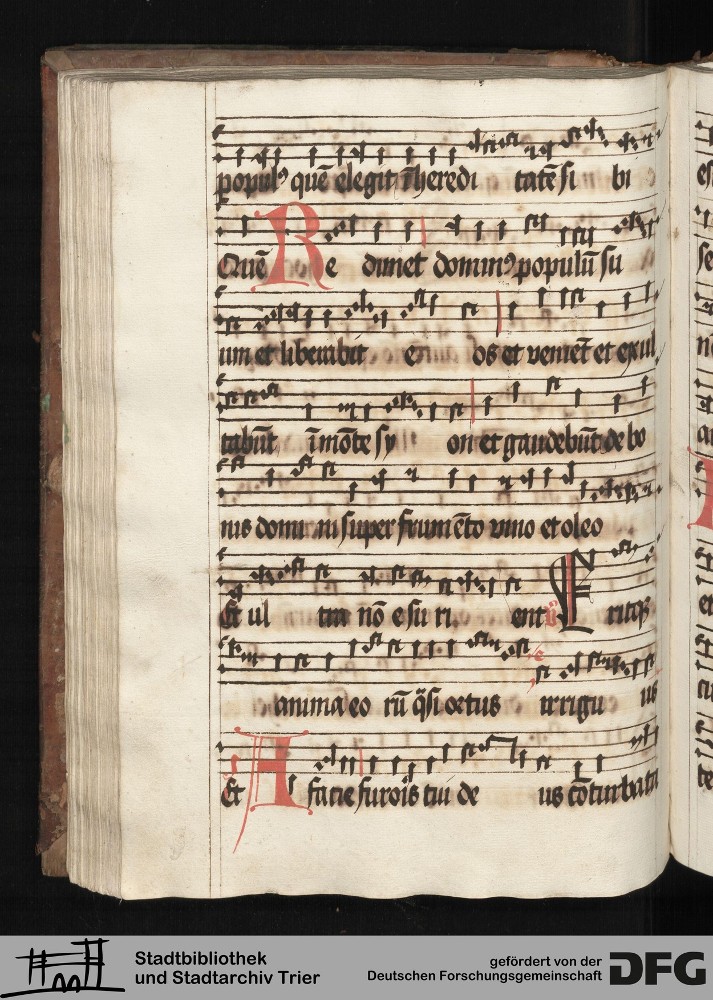 populꝰ quē elegit ī heredi tatē si bi
Quē Re dimet dominꝰ populū su
um et liberabit e os et venient et exul
tabūt ī mōte sy on et gaudebūt de bo
nis domi ni super frumēto vino et oleo
Et ul tra nō esuri ent ℣ Eritqꝫ
anima eo rū q̄si ortus irrigu us
Et A facie furoīs tui de us cōturbata
Stadtbibliothek
und Stadtarchiv Trier
gefördert von der
Deutschen Forschungsgemeinschaft
DFG